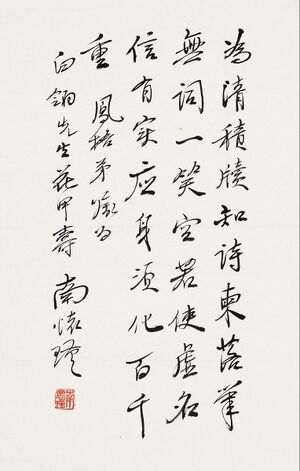 為清積牘知詩東落筆
無詞一笑空若使虛名
信有実应身須化百千
重 鳳梧弟嘱为
白翎先生花甲壽
南懷瑾